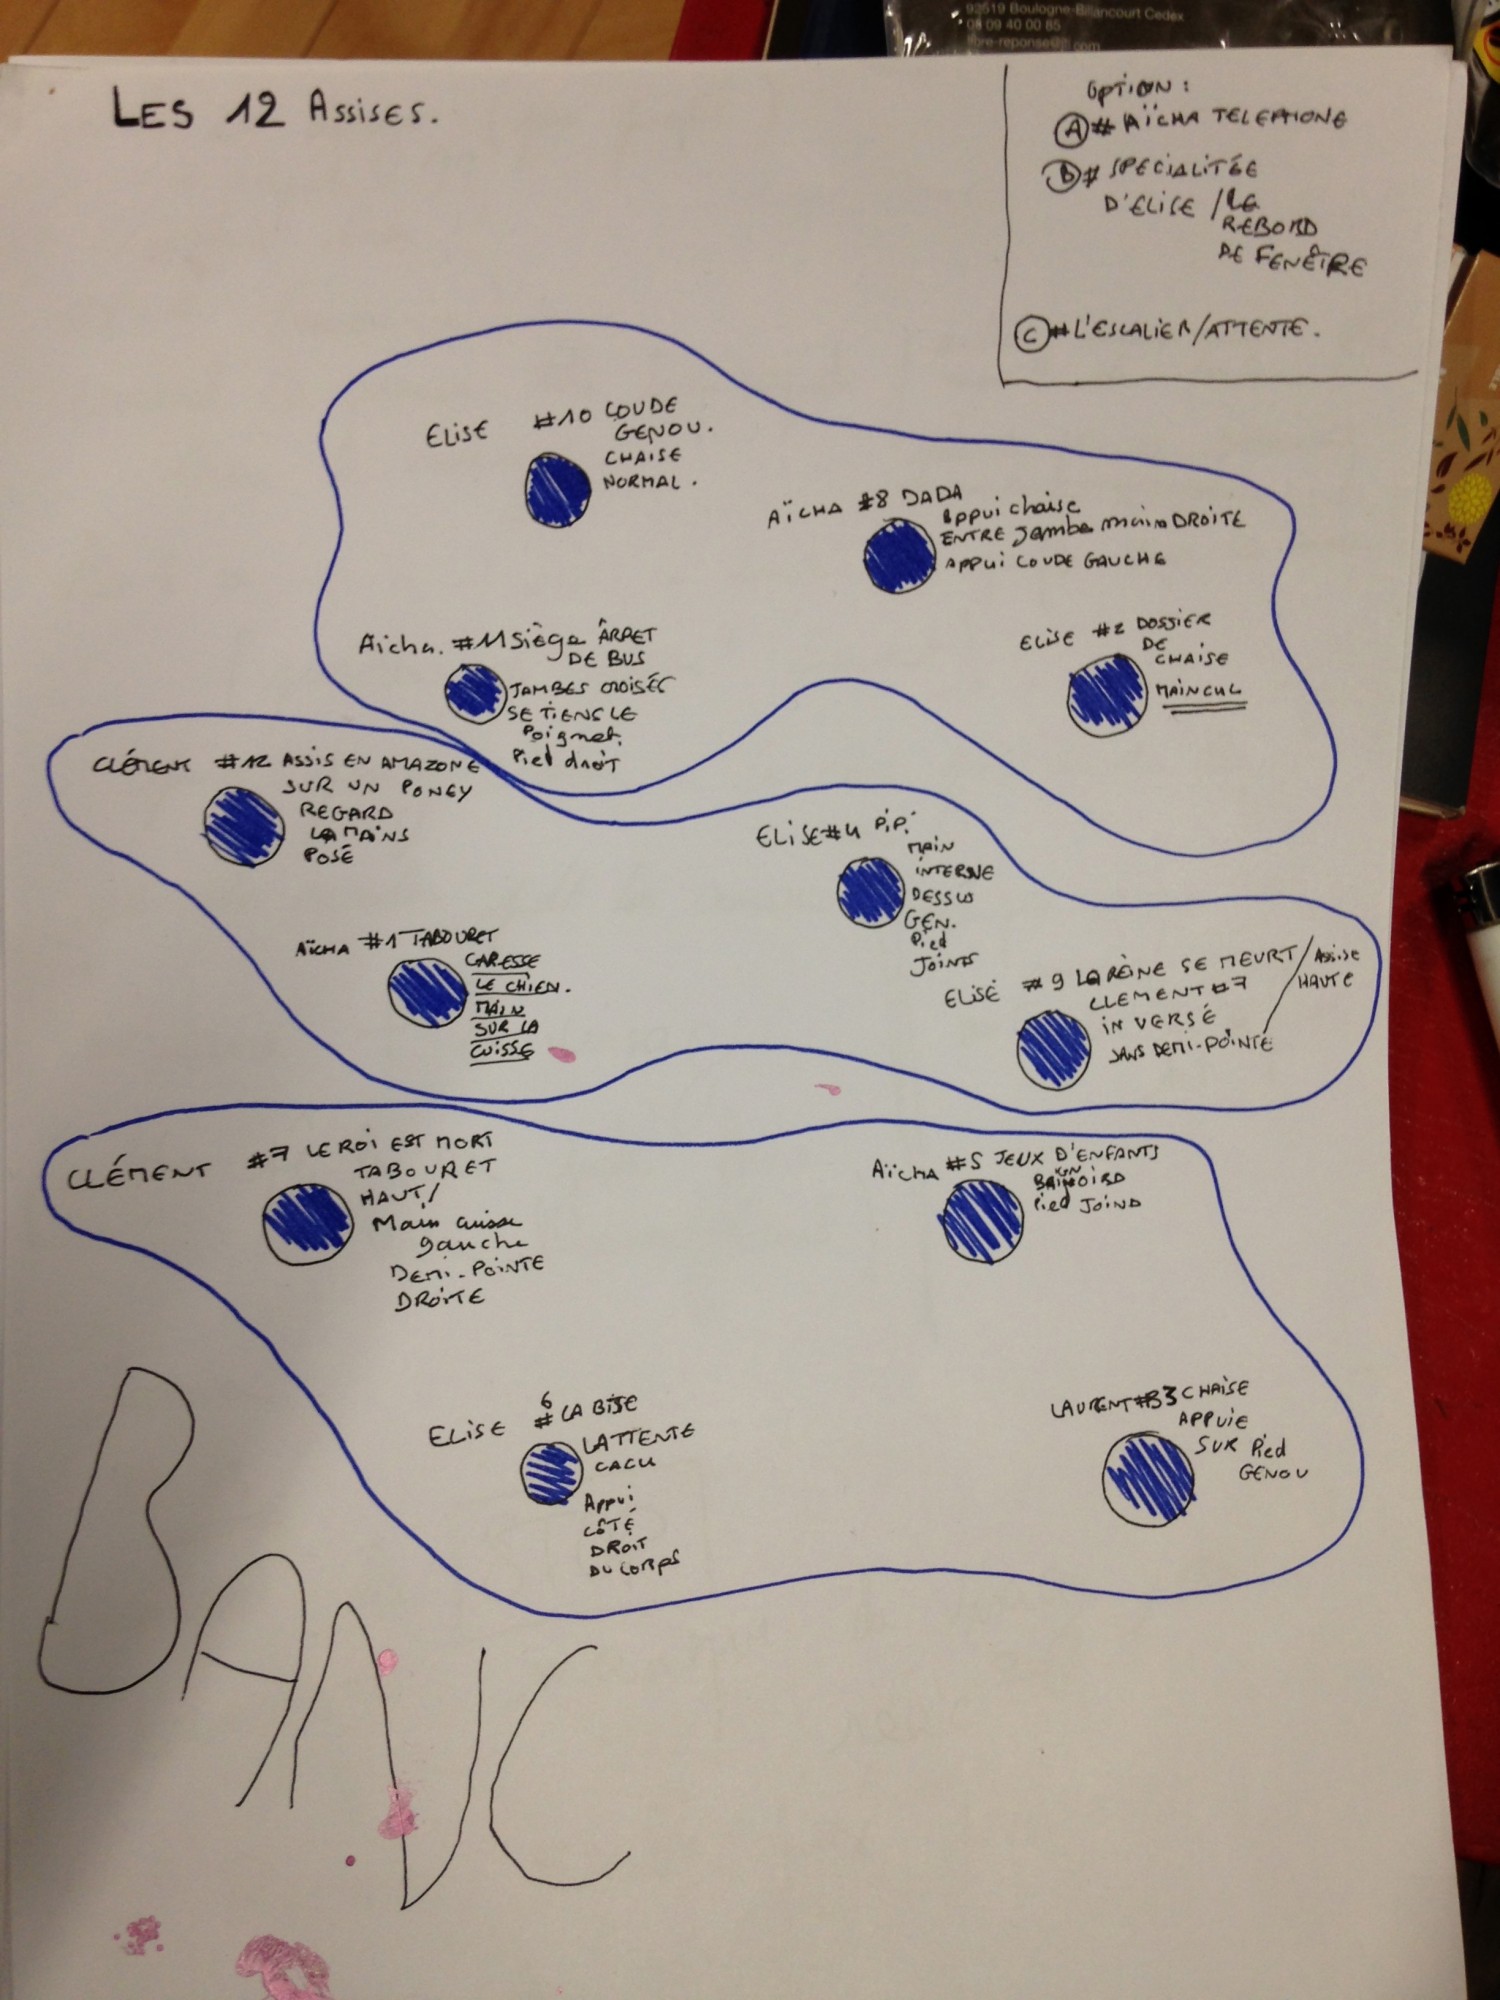 92519 Boulogne-Billancourt Cedex
08 09 40 00 85
LES 12 ASSISES.
OPTION :
A # AÏCHA TELEPHONE
B # SPECIALITÉE
D'ELISE / LE
REBORD
DE FENÊTRE
C # L'ESCALIER/ATTENTE.
ELISE #10 COUDE
GENOU.
CHAISE
NORMAL.
AÏCHA #8 DADA
Appui chaise
ENTRE Jambe main DROITE
APPUI COUDE GAUCHE
Aïcha. #11 Siège ÂRRET
DE BUS
JAMBES CROISÉS
SE TIENS LE
Poignet.
Pied droit
ELISE #2 DOSSIER
DE
CHAISE
MAINCUL
CLÉMENT #12 ASSIS EN AMAZONE
SUR UN PONEY
REGARD
LA MAINS
POSÉ
ELISE #4 PiPi
MAIN
INTERNE
DESSUS
GEN.
Pied
JOINTS
AÏCHA #1 TABOURET
CARESSE
LE CHIEN.
MAIN
SUR LA
CUISSE
ELISE #9 LA REINE SE MEURT / Assise
HAUTE
CLEMENT #7
INVERSÉ
SANS DEMI-POINTE
CLÉMENT #7 LE ROI EST MORT
TABOURET
HAUT/
Main cuisse
gauche
DEMI-POINTE
DROITE
AÏCHA #5 JEUX D'ENFANTS
Pied JOIND
ELISE #6 LA BISE
L'ATTENTE
CACU
Appui
CÔTÉ
DROIT
DU CORPS
LAURENT #3 CHAISE
APPUIE
SUR Pied
GENOU
BANC